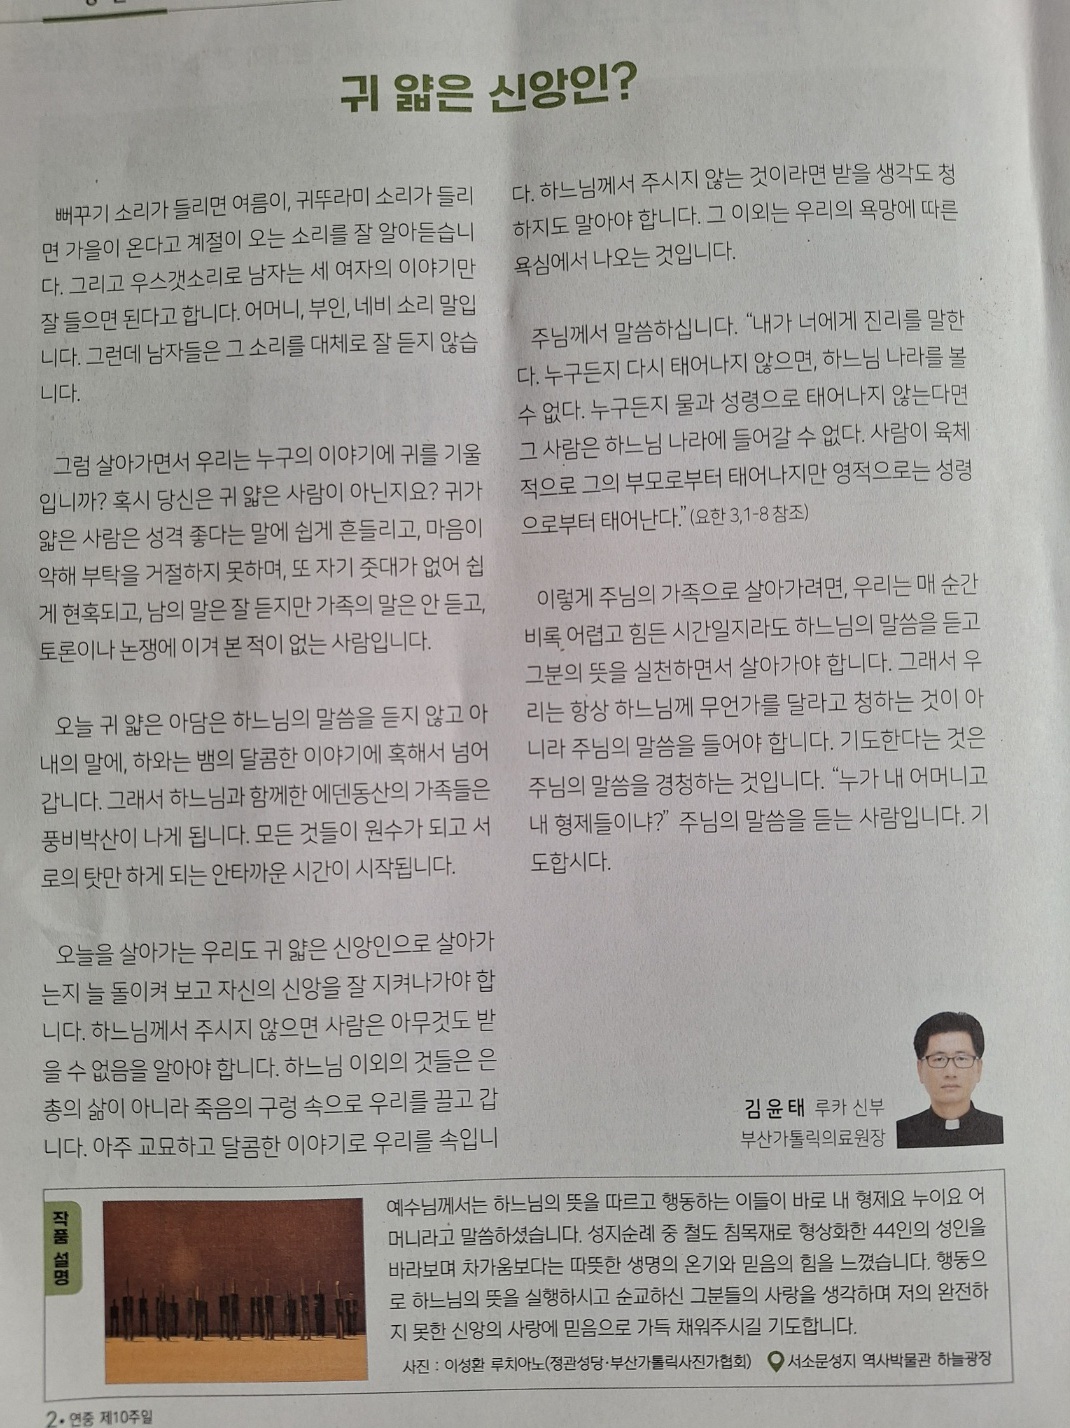 귀 얇은 신앙인?
뻐꾸기 소리가 들리면 여름이, 귀뚜라미 소리가 들리
면 가을이 온다고 계절이 오는 소리를 잘 알아듣습니
다. 그리고 우스갯소리로 남자는 세 여자의 이야기만
잘 들으면 된다고 합니다. 어머니, 부인, 네비 소리 말입
니다. 그런데 남자들은 그 소리를 대체로 잘 듣지 않습
니다.
그럼 살아가면서 우리는 누구의 이야기에 귀를 기울
입니까? 혹시 당신은 귀 얇은 사람이 아닌지요? 귀가
얇은 사람은 성격 좋다는 말에 쉽게 흔들리고, 마음이
약해 부탁을 거절하지 못하며, 또 자기 줏대가 없어 쉽
게 현혹되고, 남의 말은 잘 듣지만 가족의 말은 안 듣고,
토론이나 논쟁에 이겨 본 적이 없는 사람입니다.
오늘 귀 얇은 아담은 하느님의 말씀을 듣지 않고 아
내의 말에, 하와는 뱀의 달콤한 이야기에 혹해서 넘어
갑니다. 그래서 하느님과 함께한 에덴동산의 가족들은
풍비박산이 나게 됩니다. 모든 것들이 원수가 되고 서
로의 탓만 하게 되는 안타까운 시간이 시작됩니다.
오늘을 살아가는 우리도 귀 얇은 신앙인으로 살아가
는지 늘 돌이켜 보고 자신의 신앙을 잘 지켜나가야 합
니다. 하느님께서 주시지 않으면 사람은 아무것도 받
을 수 없음을 알아야 합니다. 하느님 이외의 것들은 은
총의 삶이 아니라 죽음의 구렁 속으로 우리를 끌고 갑
니다. 아주 교묘하고 달콤한 이야기로 우리를 속입니
다. 하느님께서 주시지 않는 것이라면 받을 생각도 청
하지도 말아야 합니다. 그 이외는 우리의 욕망에 따른
욕심에서 나오는 것입니다.
주님께서 말씀하십니다. “내가 너에게 진리를 말한
다. 누구든지 다시 태어나지 않으면, 하느님 나라를 볼
수 없다. 누구든지 물과 성령으로 태어나지 않는다면
그 사람은 하느님 나라에 들어갈 수 없다. 사람이 육체
적으로 그의 부모로부터 태어나지만 영적으로는 성령
으로부터 태어난다.”(요한 3,1-8 참조)
이렇게 주님의 가족으로 살아가려면, 우리는 매 순간
비록 어렵고 힘든 시간일지라도 하느님의 말씀을 듣고
그분의 뜻을 실천하면서 살아가야 합니다. 그래서 우
리는 항상 하느님께 무언가를 달라고 청하는 것이 아
니라 주님의 말씀을 들어야 합니다. 기도한다는 것은
주님의 말씀을 경청하는 것입니다. “누가 내 어머니고
내 형제들이냐?” 주님의 말씀을 듣는 사람입니다. 기
도합시다.
김윤태 루카 신부
부산가톨릭의료원장
작품 설명
예수님께서는 하느님의 뜻을 따르고 행동하는 이들이 바로 내 형제요 누이요 어
머니라고 말씀하셨습니다. 성지순례 중 철도 침목재로 형상화한 44인의 성인을
바라보며 차가움보다는 따뜻한 생명의 온기와 믿음의 힘을 느꼈습니다. 행동으
로 하느님의 뜻을 실행하시고 순교하신 그분들의 사랑을 생각하며 저의 완전하
지 못한 신앙의 사랑에 믿음으로 가득 채워주시길 기도합니다.
사진 : 이성환 루치아노(정관성당·부산가톨릭사진가협회) 서소문성지 역사박물관 하늘광장
2• 연중 제10주일